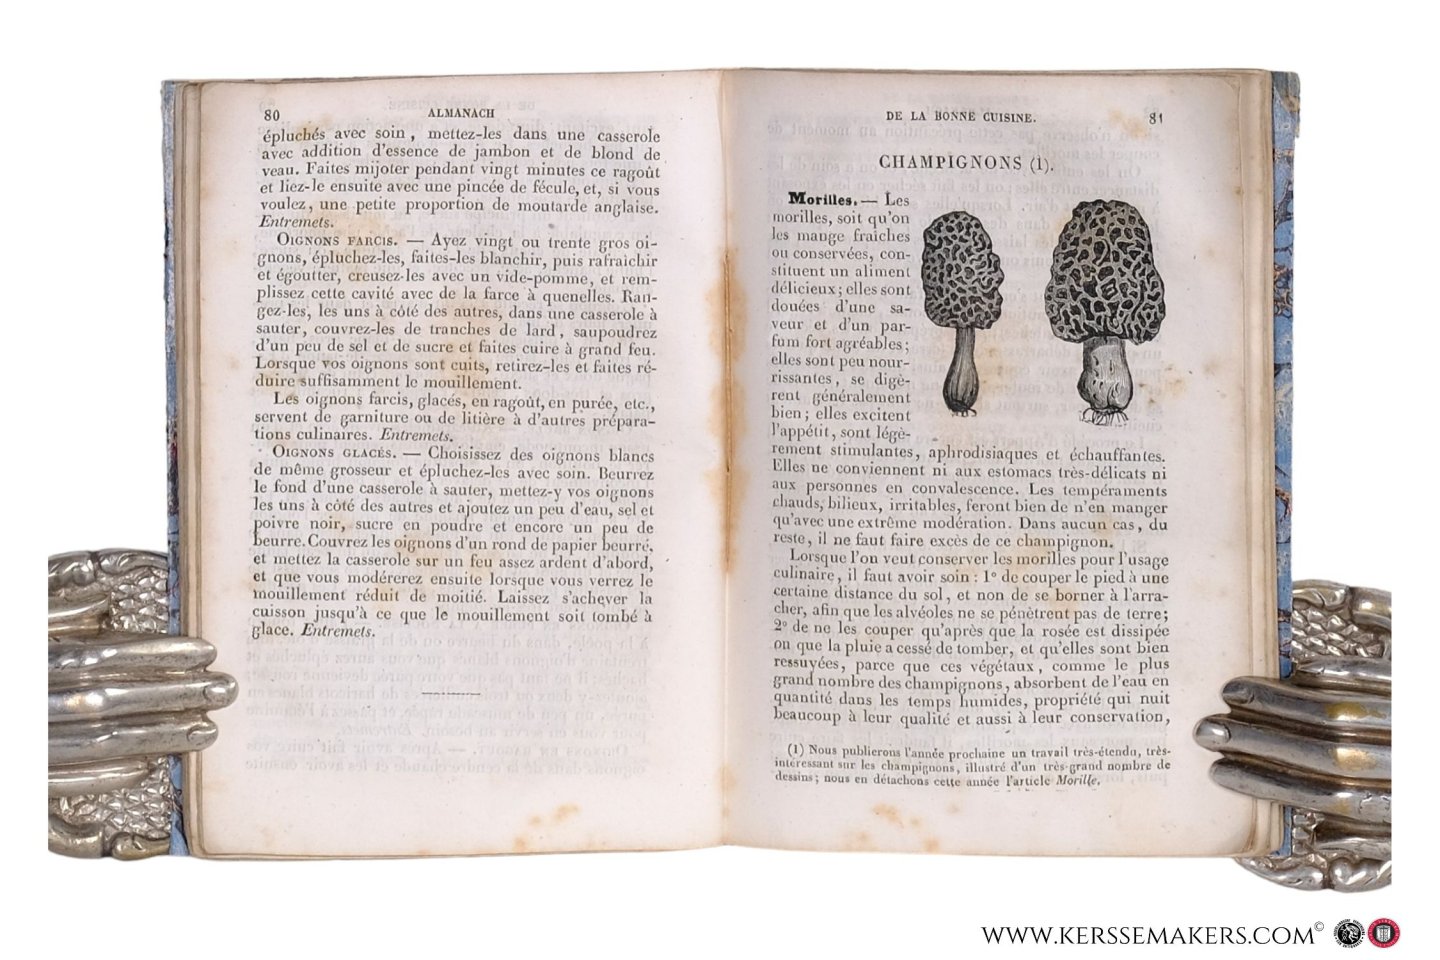 80 ALMANACH
épluchés avec soin, mettez-les dans une casserole
avec addition d'essence de jambon et de blond de
veau. Faites mijoter pendant vingt minutes ce ragoût
et liez-le ensuite avec une pincée de fécule, et, si vous
voulez, une petite proportion de moutarde anglaise.
Entremets.
OIGNONS FARCIS. — Ayez vingt ou trente gros oi-
gnons, épluchez-les, faites-les blanchir, puis rafraichir
et égoutter, creusez-les avec un vide-pomme, et rem-
plissez cette cavité avec de la farce à quenelles. Ran-
gez-les, les uns à côté des autres, dans une casserole à
sauter, couvrez-les de tranches de lard, saupoudrez
d'un peu de sel et de sucre et faites cuire à grand feu.
Lorsque vos oignons sont cuits, retirez-les et faites ré-
duire suffisamment le mouillement.
Les oignons farcis, glacés, en ragoût, en purée, etc.,
servent de garniture ou de litière à d'autres prépara-
tions culinaires. Entremets.
OIGNONS GLACÉS. — Choisissez des oignons blancs
de même grosseur et épluchez-les avec soin. Beurrez
le fond d'une casserole à sauter, mettez-y vos oignons
les uns à côté des autres et ajoutez un peu d'eau, sel et
poivre noir, sucre en poudre et encore un peu de
beurre. Couvrez les oignons d'un rond de papier beurré,
et mettez la casserole sur un feu assez ardent d'abord,
et que vous modérerez ensuite lorsque vous verrez le
mouillement réduit de moitié. Laissez s'achever la
cuisson jusqu'à ce que le mouillement soit tombé à
glace. Entremets.
DE LA BONNE CUISINE. 81
CHAMPIGNONS (1).
Morilles. — Les
morilles, soit qu'on
les mange fraîches
ou conservées, con-
stituent un aliment
délicieux; elles sont
douées d'une sa-
veur et d'un par-
fum fort agréables;
elles sont peu nour-
rissantes, se digè-
rent généralement
bien; elles excitent
l'appétit, sont légè-
rement stimulantes, aphrodisiaques et échauffantes.
Elles ne conviennent ni aux estomacs très-délicats ni
aux personnes en convalescence. Les tempéraments
chauds, bilieux, irritables, feront bien de n'en manger
qu'avec une extrême modération. Dans aucun cas, du
reste, il ne faut faire excès de ce champignon.
Lorsque l'on veut conserver les morilles pour l'usage
culinaire, il faut avoir soin : 1° de couper le pied à une
certaine distance du sol, et non de se borner à l'arra-
cher, afin que les alvéoles ne se pénètrent pas de terre;
2° de ne les couper qu'après que la rosée est dissipée
ou que la pluie a cessé de tomber, et qu'elles sont bien
ressuyées, parce que ces végétaux, comme le plus
grand nombre des champignons, absorbent de l'eau en
quantité dans les temps humides, propriété qui nuit
beaucoup à leur qualité et aussi à leur conservation,
(1) Nous publierons l'année prochaine un travail très-étendu, très-
intéressant sur les champignons, illustré d'un très-grand nombre de
dessins; nous en détachons cette année l'article Morille.
WWW.KERSSEMAKERS.COM©